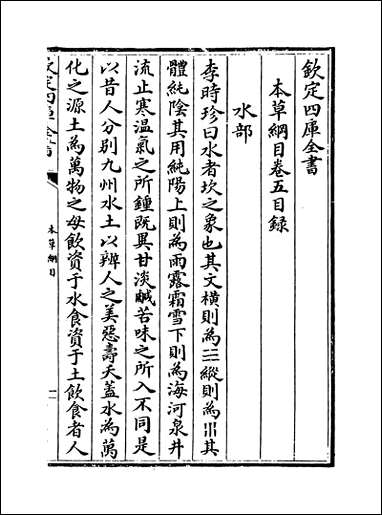 欽定四庫全書
本草綱目卷五目録
水部
李時珍曰水者坎之象也其文橫則為☵縱則為巛其
體純陰其用純陽上則為雨露霜雪下則為海河泉井
流止寒溫氣之所鍾既異甘淡鹹苦味之所入不同是
以昔人分别九州水土以辨人之美惡壽夭蓋水為萬
化之源土為萬物之母飲資于水食資于土飲食者人
欽定四庫全書
本草綱目